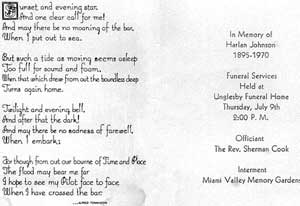 Sunset and evening star,
And one clear call for me!
And may there be no moaning of the bar,
When I put out to sea.
But such a tide as moving seems asleep
Too full for sound and foam,
When that which drew from out the boundless deep
Turns again home.
Twilight and evening bell,
And after that the dark!
And may there be no sadness of farewell,
When I embark;
For though from out our bourne of Time and Place
The flood may bear me far
I hope to see my Pilot face to face
When I have crossed the bar.
ALFRED TENNYSON
In Memory of
Harlan Johnson
1895-1970
Funeral Services
Held at
Unglesby Funeral Home
Thursday, July 9th
2:00 P. M.
Officiant
The Rev. Sherman Cook
Interment
Miami Valley Memory Gardens